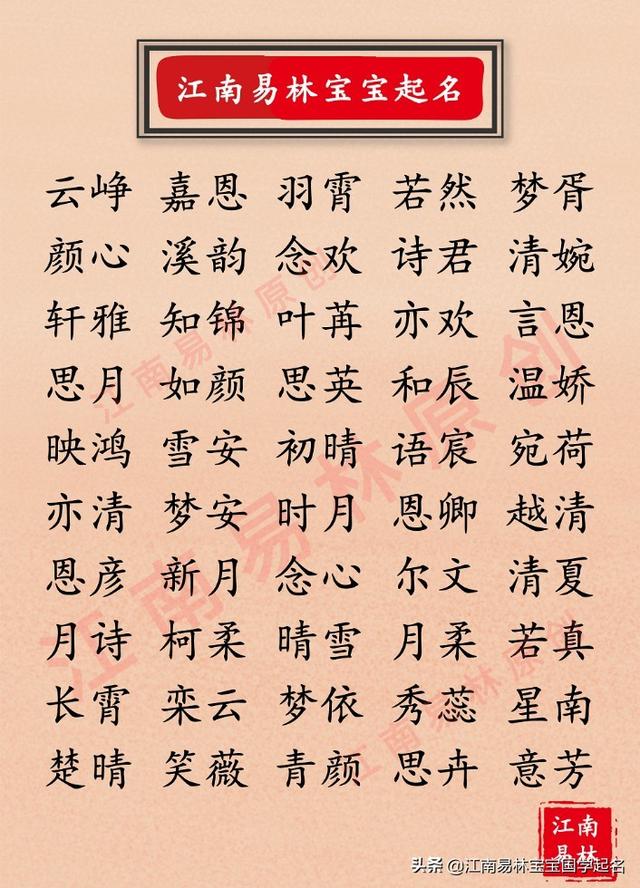 江南易林宝宝起名
云峥 嘉恩 羽霄 若然 梦胥
颜心 溪韵 念欢 诗君 清婉
轩雅 知锦 叶苒 亦欢 言恩
思月 如颜 思英 和辰 温娇
映鸿 雪安 初晴 语宸 宛荷
亦清 梦安 时月 恩卿 越清
恩彦 新月 念心 尔文 清夏
月诗 柯柔 晴雪 月柔 若真
长霄 栾云 梦依 秀蕊 星南
楚晴 笑薇 青颜 思卉 意芳
江南易林原创
江南易林原创
江南易林原创
江南
易林
头条 @江南易林宝宝国学起名